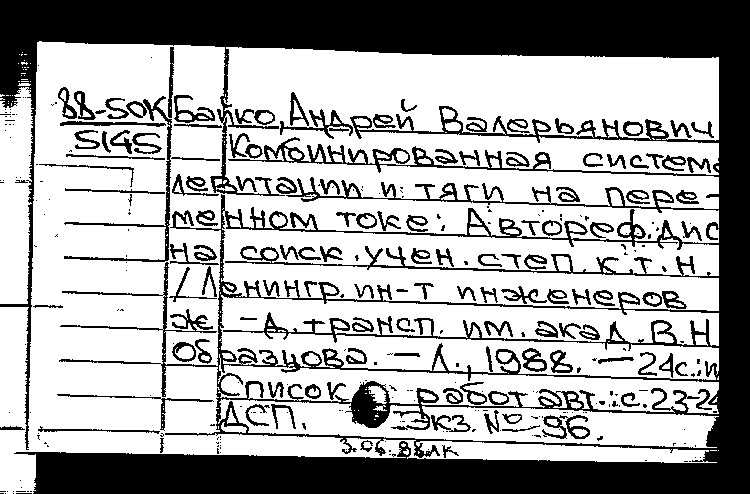 88-50К Байко, Андрей Валерьянович
5145 Комбинированная система
левитации и тяги на пере-
менном токе: Автореф. дис
на соиск. учен. степ. к.т.н.
/Ленингр. ин-т инженеров
ж-д. трансп. им. акад. В.Н
Образцова. – Л., 1988. – 24с.:и
Список работ авт.: с. 23-24
ДСП. Экз. № 96.
3.06.88лк